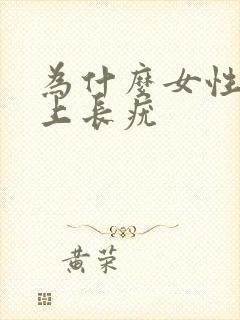 為什麼女性
上長疣
黃荣